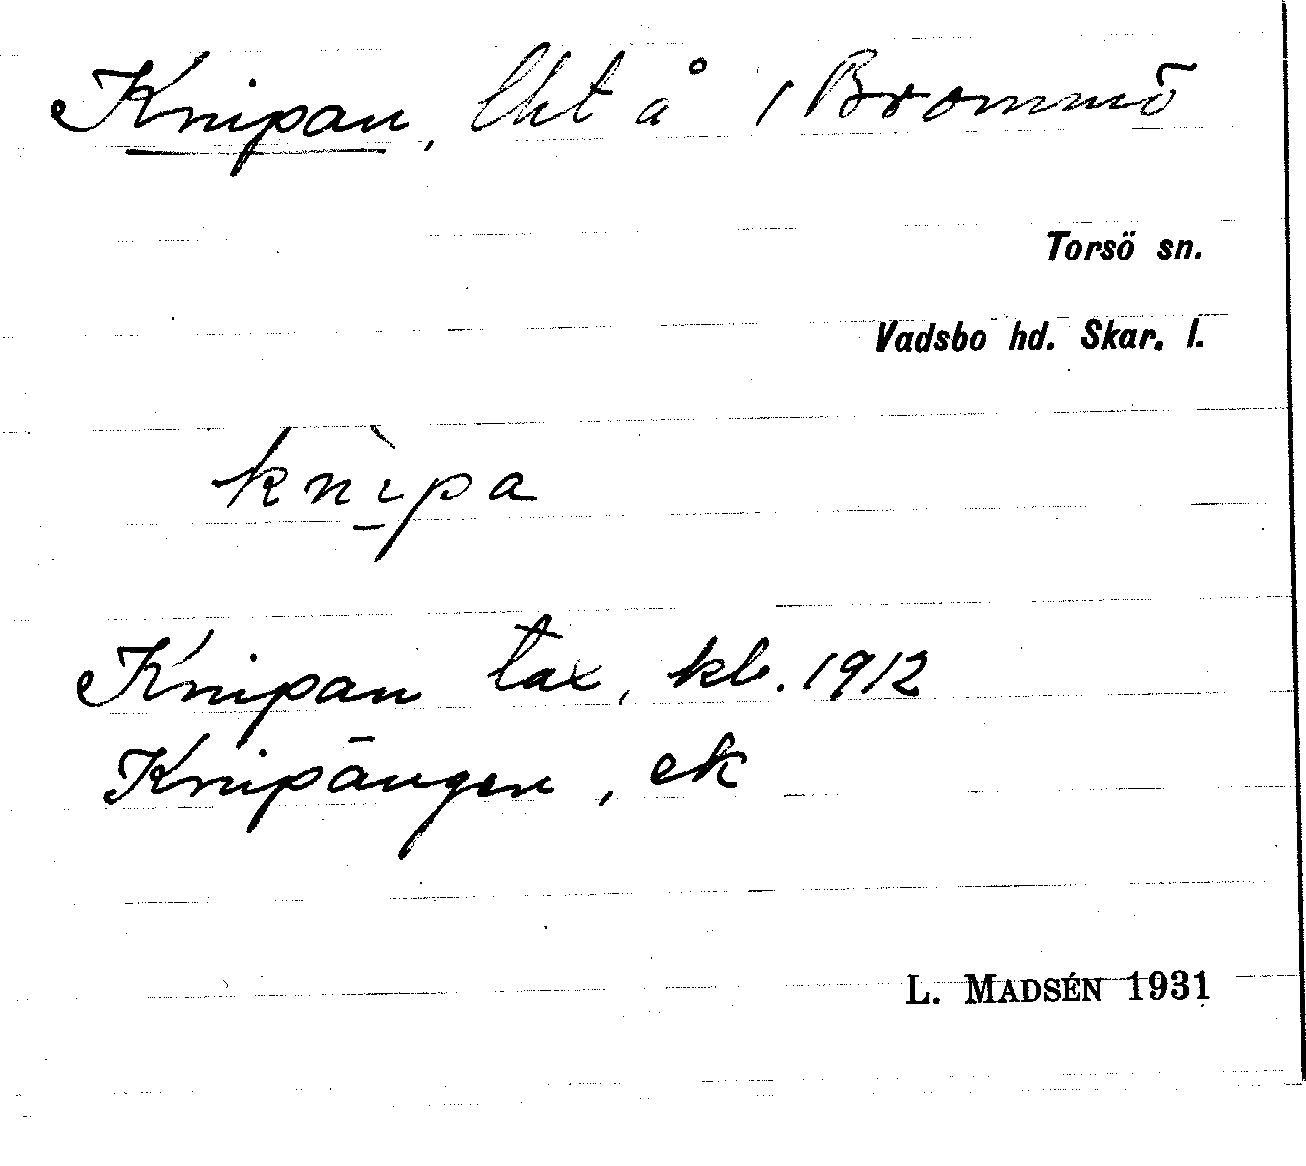 Knipan, lht å 1 Brommö
Torsö sn.
Vadsbo hd. Skar. l.
knìpa
Knipan tax, kb. 1912
Knipängen, ek
L. MADSÉN 1931